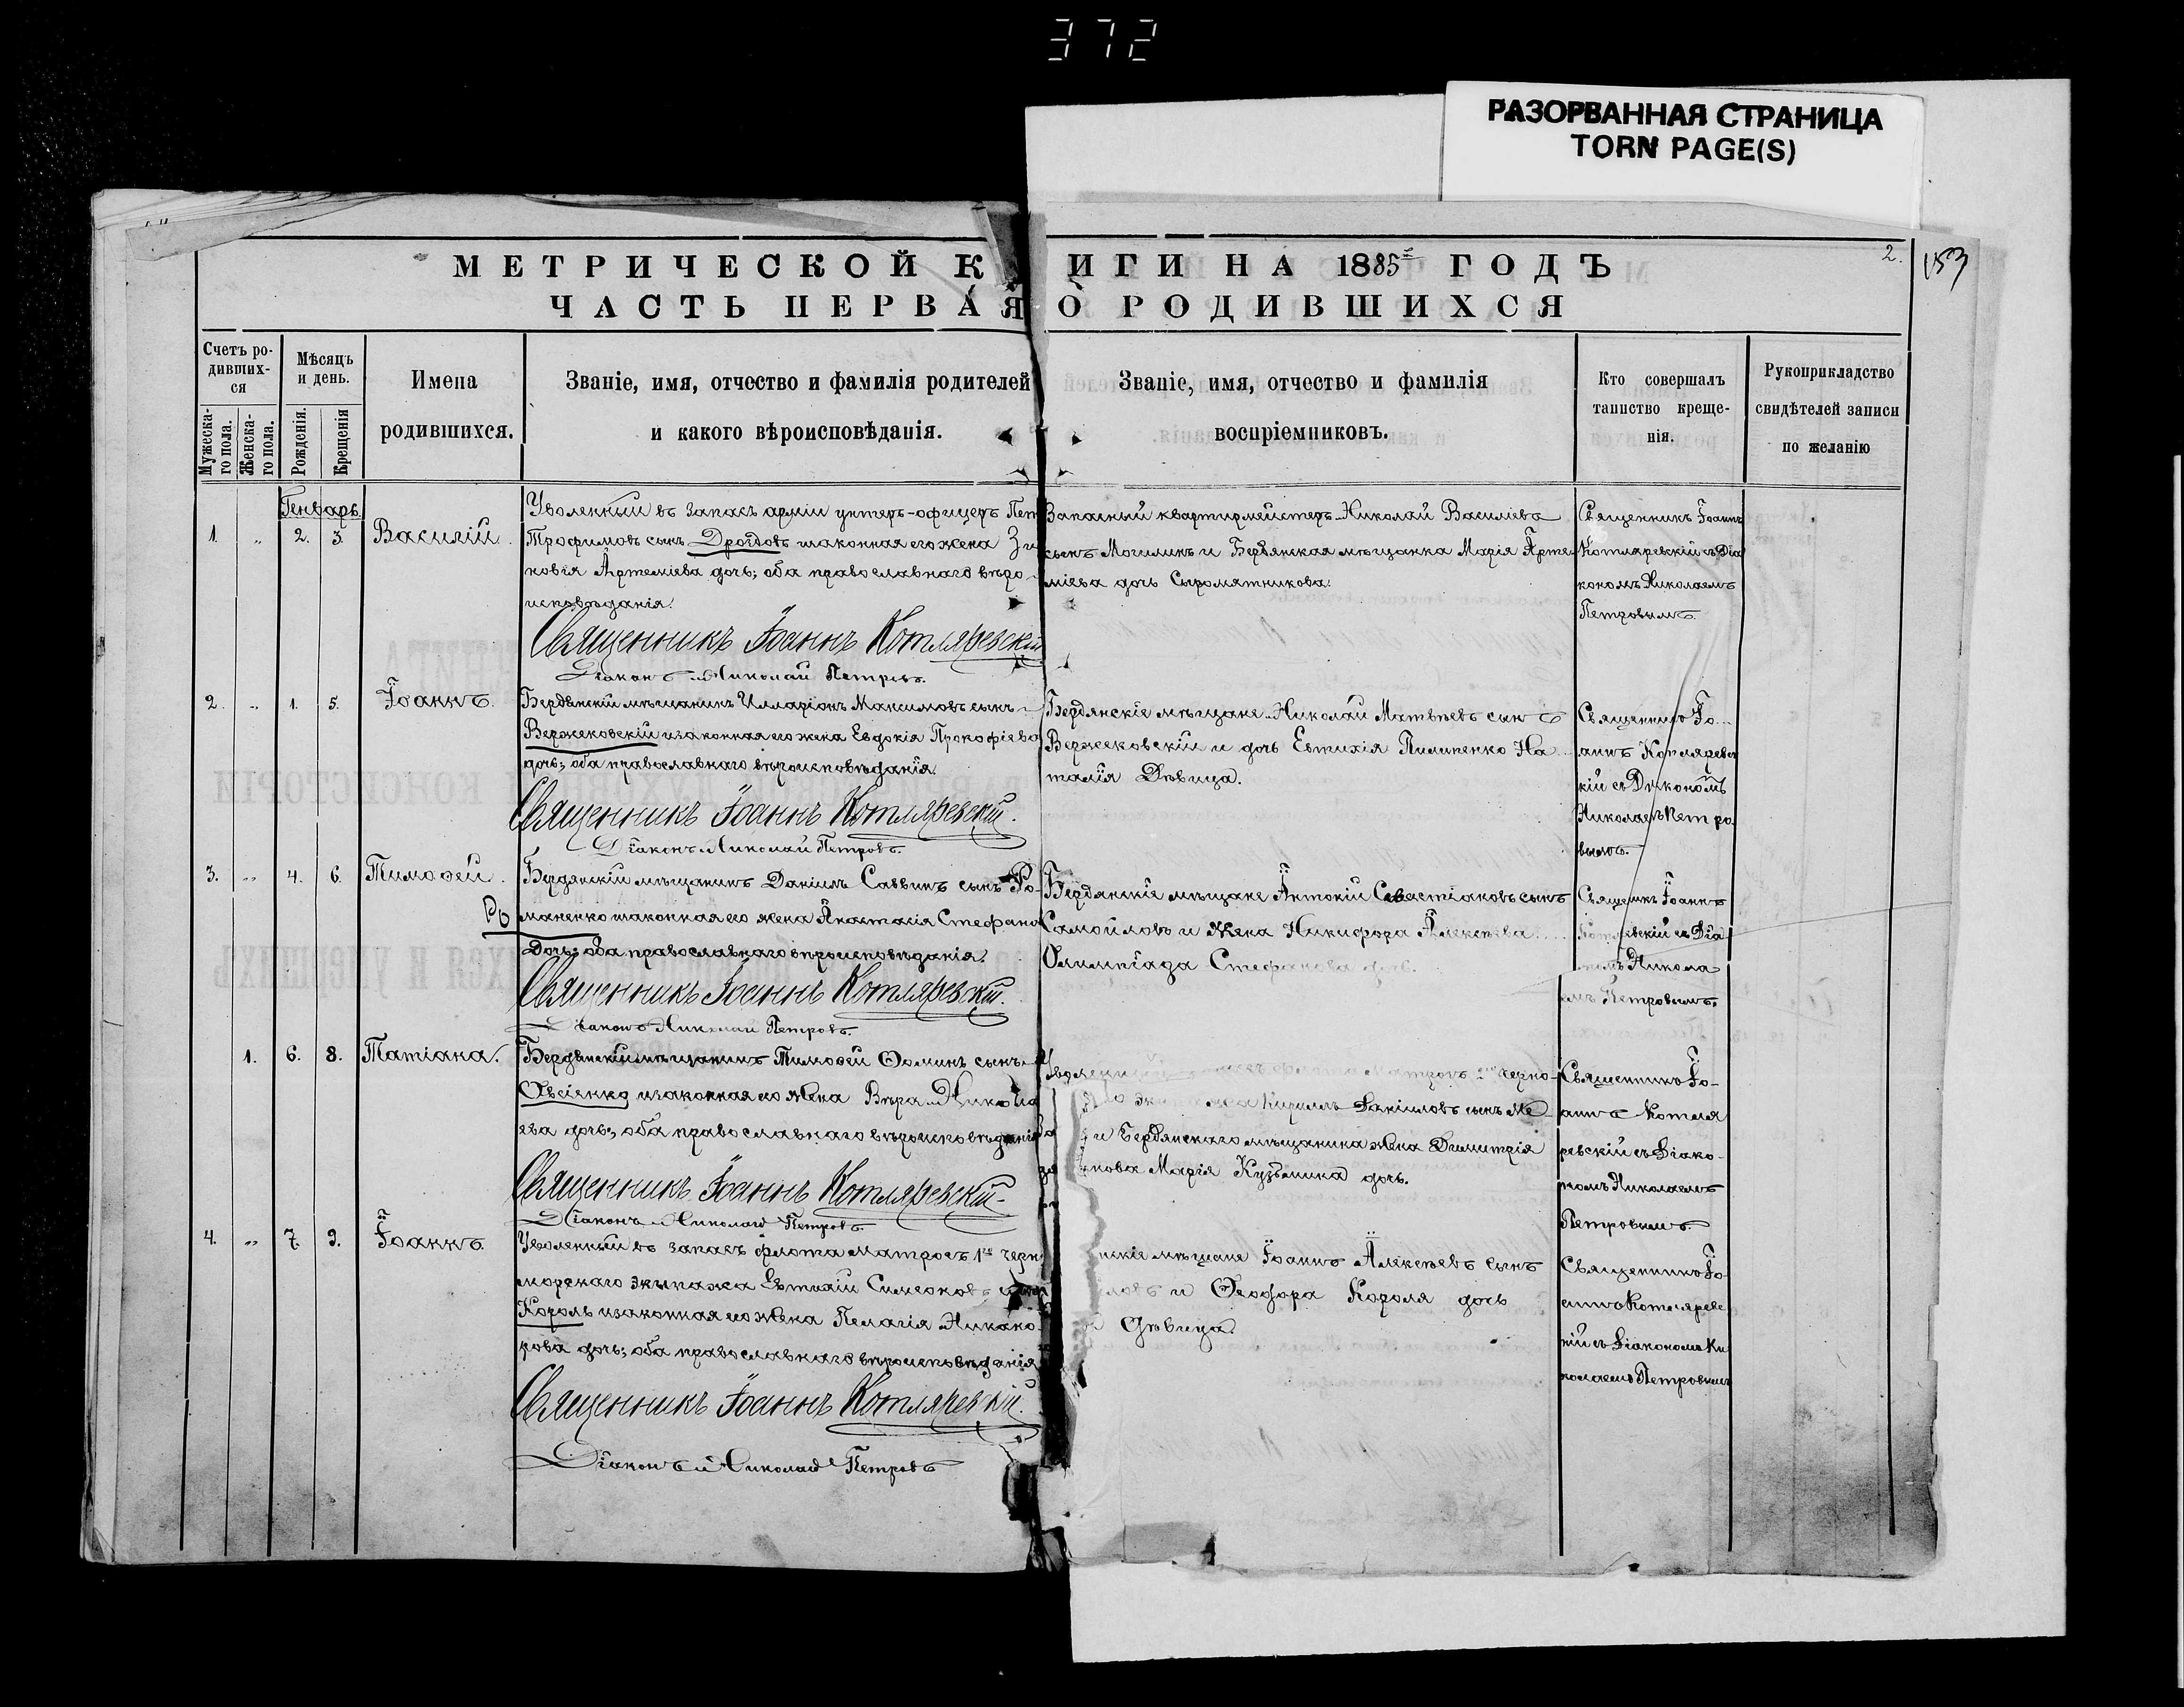 372
РАЗОРВАННАЯ СТРАНИЦА
TORN PAGE(S)
МЕТРИЧЕСКОЙ К ИГИ НА 1885 ГОДЪ
2.
153
ЧАСТЬ ПЕРВАЯ О РОДИВШИХСЯ
Счетъ ро-
дивших-
ся
Мужеска-
го пола.
Женска-
го пола.
Мѣсяцъ
и день.
Рожденія.
Крещенія
Имена
родившихся.
Званіе, имя, отчество и фамилія родителей
и какого вѣроисповѣданія.
Званіе, имя, отчество и фамилія
воспріемниковъ.
Кто совершалъ
таинство креще-
нія.
Рукоприкладство
свидѣтелей записи
по желанію
Генварь.
1. „ 2. 3. Василій.
Уволенный въ запасъ арміи унтеръ-офицеръ Пет
Трофимовъ сынъ Дроздовъ и законная его жена Зи
новія Артеміева дочь; оба православнаго вѣро-
исповѣданія.
Священникъ Іоаннъ Котляревскій
Діаконъ Николай Петровъ.
Запасный квартирмейстеръ Николай Василіевъ
сынъ Могилинъ и Бердянская мѣщанка Марія Арте-
міева дочь Сыромятникова.
Священникъ Іоаннъ
Котляревскій съ Діа
кономъ Николаемъ
Петровымъ.
2. „ 1. 5. Іоаннъ.
Бердянскій мѣщанинъ Илларіонъ Максимовъ сынъ
Вержековскій и законная его жена Евдокія Прокофіева
дочь; оба православнаго вѣроисповѣданія.
Священникъ Іоаннъ Котляревскій.
Діаконъ Николай Петровъ.
Бердянскіе мѣщане Николай Матвѣевъ сынъ
Вержековскій и дочь Евтихія Пилипенко На
талія Дѣвица.
Священникъ Іо-
аннъ Котляревс
кій съ Діакономъ
Николаемъ Петро
вымъ.
3. „ 4. 6. Тимоѳей.
Бердянскій мѣщанинъ Даніилъ Саввинъ сынъ Ро-
маненко и законная его жена Анастасія Стефанова
Дочь; оба православнаго вѣроисповѣданія.
Священникъ Іоаннъ Котляревскій.
Діаконъ Николай Петровъ.
Бердянскіе мѣщане Антоній Севастіановъ сынъ
Самойловъ и жена Никифора Алексѣева
Олимпіада Стефанова дочь.
Священникъ Іоаннъ
евскій съ Діа
Никола
емъ Петровымъ.
1. 6. 8. Татіана.
Бердянскій мѣщанинъ Тимоѳей Ѳоминъ сынъ
Овсіенко и законная его жена Вѣра Никола
ева дочь; оба православнаго вѣроисповѣданія
Священникъ Іоаннъ Котляревскій
Діаконъ Николай Петровъ.
Кириллъ Даніиловъ сынъ Ме
и Бердянскаго мѣщанина жена Димитрія
нова Марія Кузьмина дочь.
Священникъ Іо-
аннъ Котля
ревскій съ Діако-
номъ Николаемъ
Петровымъ.
4. „ 7. 9. Іоаннъ.
Уволенный въ запасъ флота матросъ 1й черно
морскаго экипажа Евтихій Симеоновъ сынъ
Король и законная его жена Пелагія Никано-
рова дочь; оба православнаго вѣроисповѣданія
Священникъ Іоаннъ Котляревскій.
Діаконъ Николай Петровъ
нскіе мѣщане Іоаннъ Алексѣевъ сынъ
ловъ и Ѳеодора Короля дочь
Дѣвица.
Священникъ Іо-
аннъ Котляревс
кій съ Діакономъ Ни
колаемъ Петровымъ